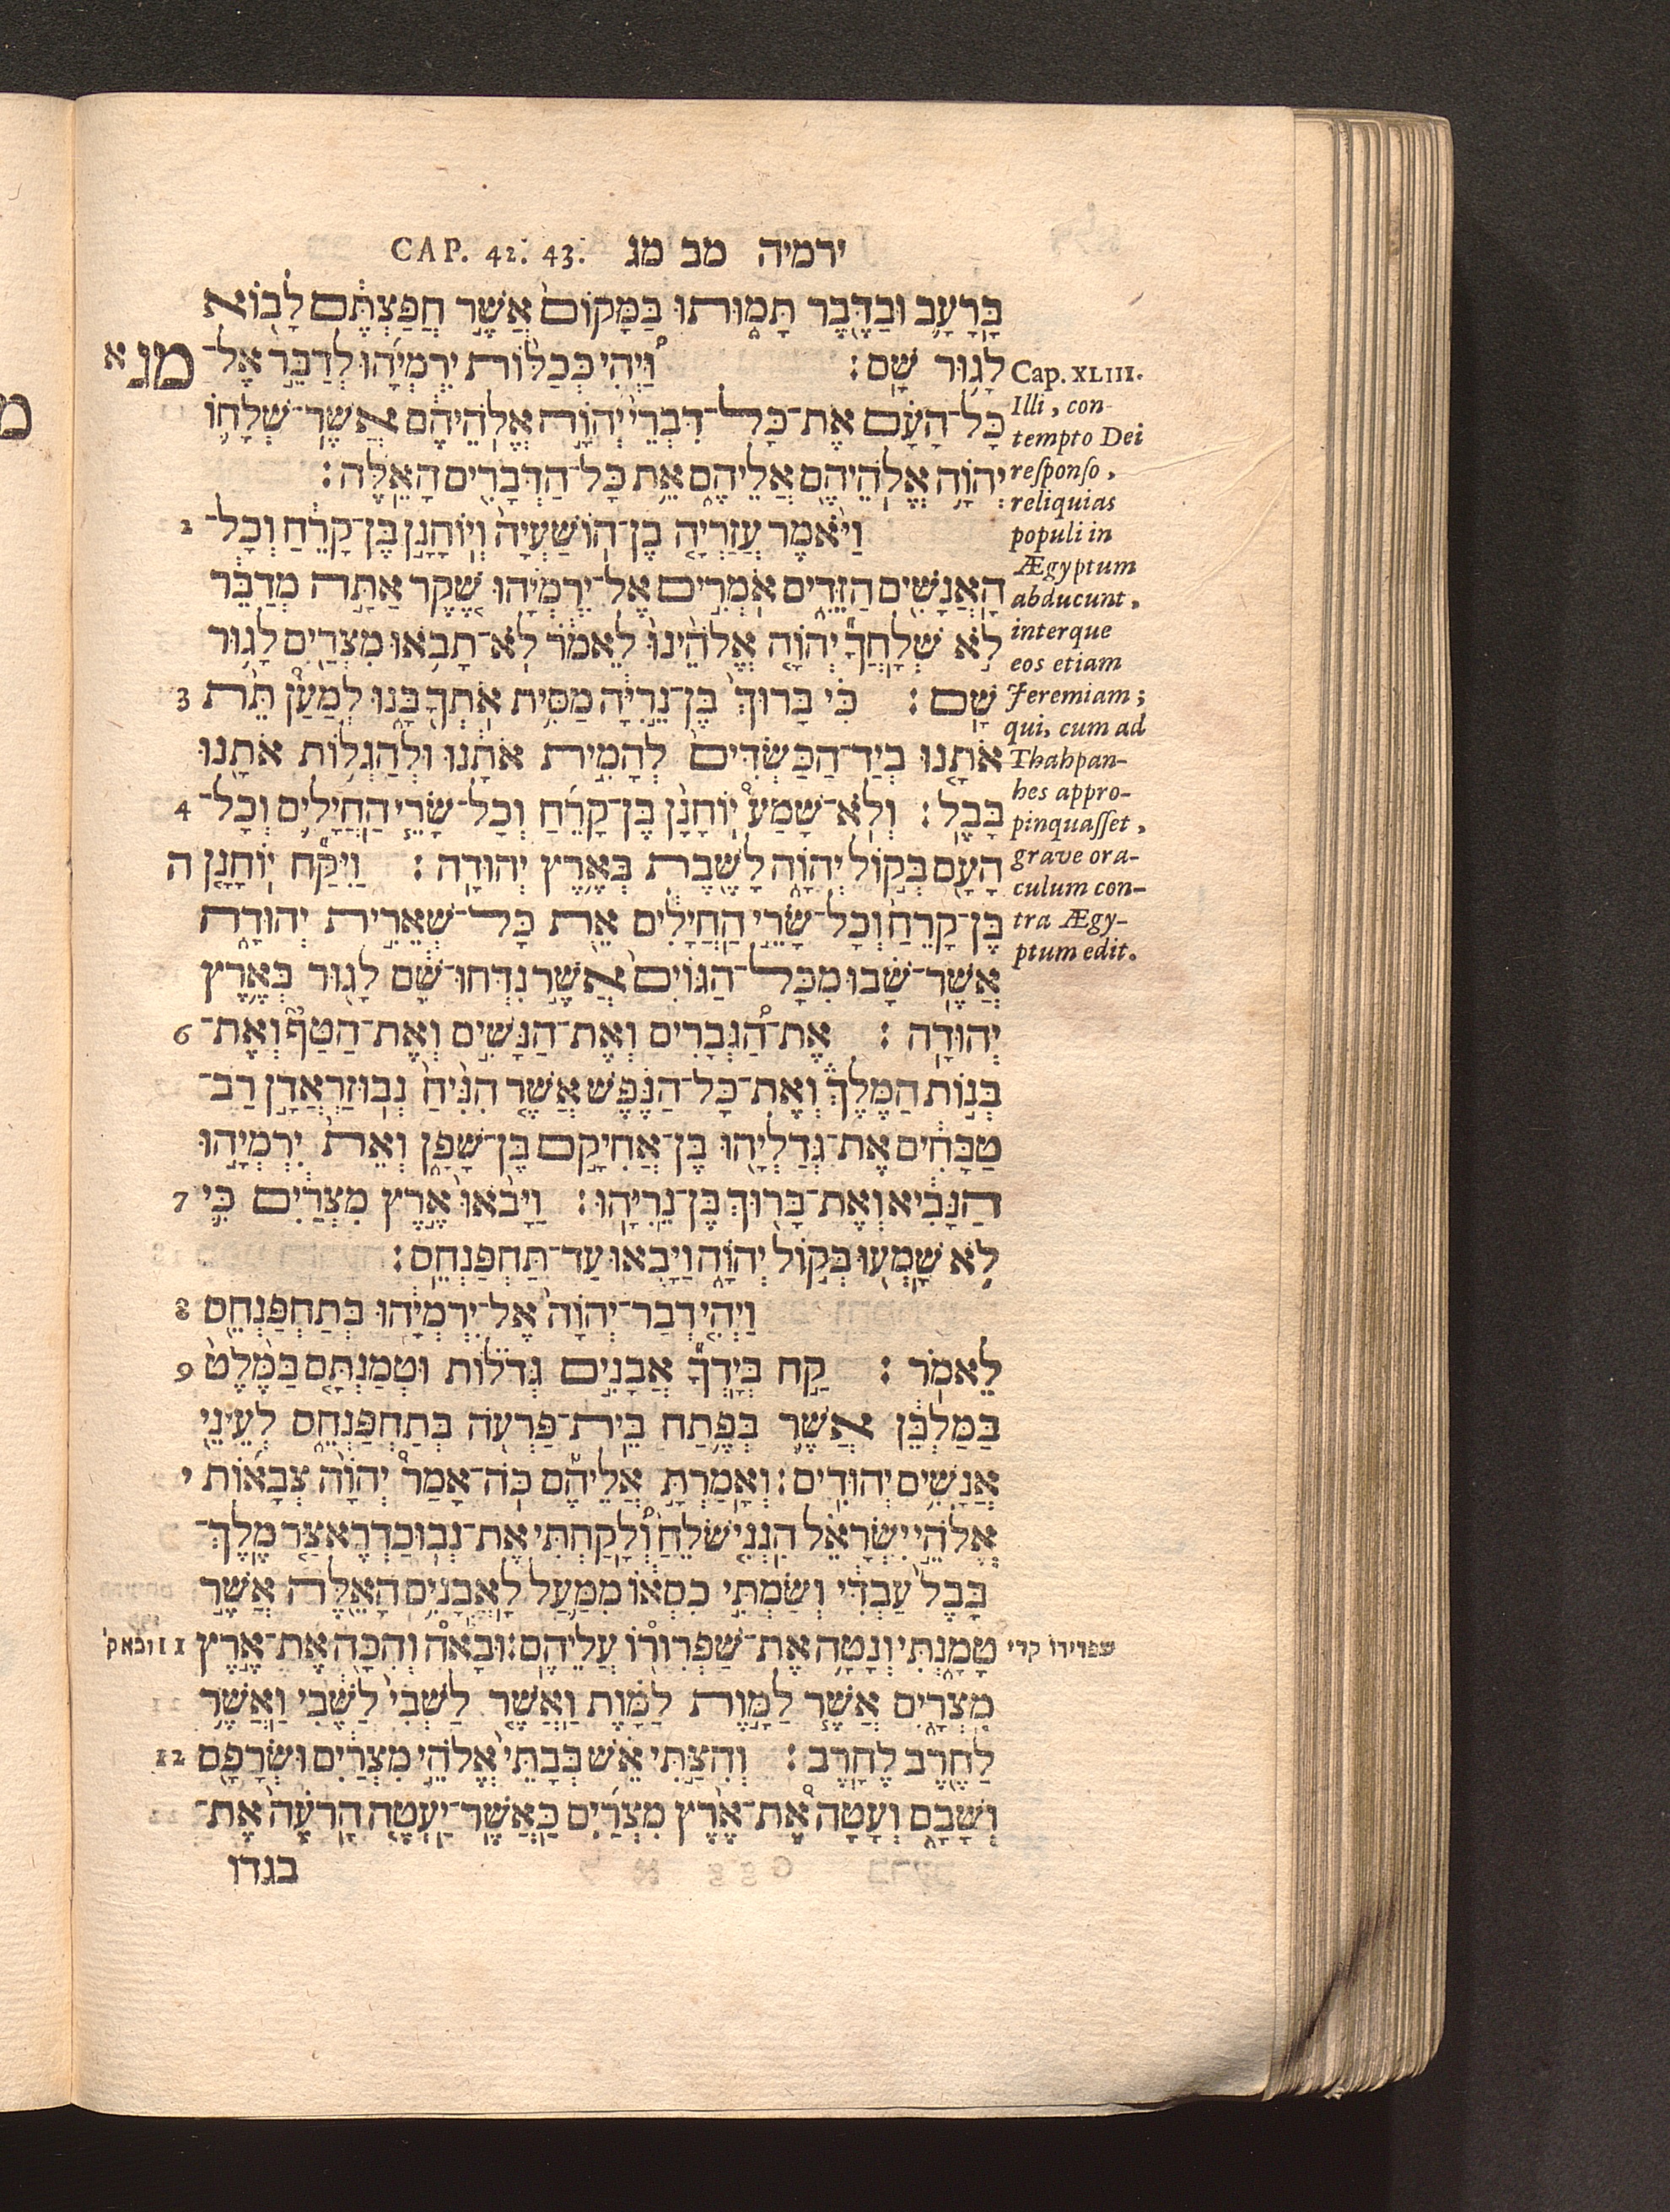 ירמיה מב מג CAP. 42. 43.
בָּרָעָ֥ב וּבַדֶּ֖בֶר תָּמ֑וּתוּ בַּמָּקוֹם֙ אֲשֶׁ֣ר חֲפַצְתֶּ֔ם לָב֖וֹא
לָג֥וּר שָֽׁם׃ וַיְהִי֩ כְּכַלּ֨וֹת יִרְמְיָ֜הוּ לְדַבֵּ֣ר אֶל־
מג א
כָּל־הָעָ֗ם אֶת־כָּל־דִּבְרֵי֙ יְהוָ֣ה אֱלֹהֵיהֶ֔ם אֲשֶׁ֧ר שְׁלָח֛וֹ
יְהוָ֥ה אֱלֹהֵיהֶ֖ם אֲלֵיהֶ֑ם אֵ֥ת כָּל־הַדְּבָרִ֖ים הָאֵֽלֶּה׃
וַיֹּ֨אמֶר עֲזַרְיָ֤ה בֶן־הֽוֹשַׁעְיָה֙ וְיוֹחָנָ֣ן בֶּן־קָרֵ֔חַ וְכָל־ 2
הָאֲנָשִׁ֖ים הַזֵּדִ֑ים אֹמְרִ֣ים אֶֽל־יִרְמְיָ֗הוּ שֶׁ֚קֶר אַתָּ֣ה מְדַבֵּ֔ר
לֹ֣א שְׁלָחֲךָ֞ יְהוָ֤ה אֱלֹהֵ֨ינוּ֙ לֵאמֹ֔ר לֹֽא־תָבֹ֥אוּ מִצְרַ֖יִם לָג֥וּר
שָֽׁם׃ כִּ֗י בָּרוּךְ֙ בֶּן־נֵ֣רִיָּ֔ה מַסִּ֥ית אֹתְךָ֖ בָּ֑נוּ לְמַעַן֩ תֵּ֨ת 3
אֹתָ֤נוּ בְיַֽד־הַכַּשְׂדִּים֙ לְהָמִ֣ית אֹתָ֔נוּ וּלְהַגְל֥וֹת אֹתָ֖נוּ
בָּבֶֽל׃ וְלֹֽא־שָׁמַע֩ יוֹחָנָ֨ן בֶּן־קָרֵ֜חַ וְכָל־שָׂרֵ֧י הַחֲיָלִ֛ים וְכָל־ 4
הָעָ֖ם בְּק֣וֹל יְהוָ֑ה לָשֶׁ֖בֶת בְּאֶ֥רֶץ יְהוּדָֽה׃ וַיִּקַּ֞ח יוֹחָנָ֤ן ה
בֶּן־קָרֵ֨חַ֙ וְכָל־שָׂרֵ֣י הַחֲיָלִ֔ים אֵ֖ת כָּל־שְׁאֵרִ֣ית יְהוּדָ֑ה
אֲשֶׁר־שָׁ֗בוּ מִכָּל־הַגּוֹיִם֙ אֲשֶׁ֣ר נִדְּחוּ־שָׁ֔ם לָג֖וּר בְּאֶ֥רֶץ
יְהוּדָֽה׃ אֶֽת־הַ֠גְּבָרִים וְאֶת־הַנָּשִׁ֣ים וְאֶת־הַטַּף֮ וְאֶת־ 6
בְּנ֣וֹת הַמֶּלֶךְ֒ וְאֵ֣ת־כָּל־הַנֶּ֗פֶשׁ אֲשֶׁ֤ר הִנִּ֨יחַ֙ נְבוּזַרְאֲדָ֣ן רַב־
טַבָּחִ֔ים אֶת־גְּדַלְיָ֖הוּ בֶּן־אֲחִיקָ֣ם בֶּן־שָׁפָ֑ן וְאֵת֙ יִרְמְיָ֣הוּ
הַנָּבִ֔יא וְאֶת־בָּר֖וּךְ בֶּן־נֵרִיָּֽהוּ׃ וַיָּבֹ֨אוּ֙ אֶ֣רֶץ מִצְרַ֔יִם כִּ֛י 7
לֹ֥א שָׁמְע֖וּ בְּק֣וֹל יְהוָ֑ה וַיָּבֹ֖אוּ עַד־תַּחְפַּנְחֵֽס׃
וַיְהִ֤י דְבַר־יְהוָה֙ אֶֽל־יִרְמְיָ֔הוּ בְּתַחְפַּנְחֵ֖ס 8
לֵאמֹֽר׃ קַ֣ח בְּיָדְךָ֞ אֲבָנִ֣ים גְּדֹל֗וֹת וּטְמַנְתָּ֤ם בַּמֶּ֨לֶט֙ 9
בַּמַּלְבֵּ֔ן אֲשֶׁ֛ר בְּפֶ֥תַח בֵּית־פַּרְעֹ֖ה בְּתַחְפַּנְחֵ֑ס לְעֵינֵ֖י
אֲנָשִׁ֥ים יְהוּדִֽים׃ וְאָמַרְתָּ֣ אֲלֵיהֶ֡ם כֹּֽה־אָמַר֩ יְהוָ֨ה צְבָא֜וֹת י
אֱלֹהֵ֣י יִשְׂרָאֵ֗ל הִנְנִ֤י שֹׁלֵחַ֙ וְ֠לָקַחְתִּי אֶת־נְבוּכַדְרֶאצַּ֤ר מֶֽלֶךְ־
בָּבֶל֙ עַבְדִּ֔י וְשַׂמְתִּ֣י כִסְא֔וֹ מִמַּ֛עַל לָאֲבָנִ֥ים הָאֵ֖לֶּה אֲשֶׁ֣ר
טָמָ֑נְתִּי וְנָטָ֥ה אֶת־שַׁפְרִור֖וֹ עֲלֵיהֶֽם׃ וּבָאה וְהִכָּ֖ה אֶת־אֶ֣רֶץ 11 ובא ק
שפרירו קרי
מִצְרָ֑יִם אֲשֶׁ֧ר לַמָּ֣וֶת לַמָּ֗וֶת וַאֲשֶׁ֤ר לַשְּׁבִי֙ לַשֶּׁ֔בִי וַאֲשֶׁ֥ר
לַחֶ֖רֶב לֶחָֽרֶב׃ וְהִצַּ֣תִּי אֵ֗שׁ בְּבָתֵּי֙ אֱלֹהֵ֣י מִצְרַ֔יִם וּשְׂרָפָ֖ם 12
וְשָׁבָ֑ם וְעָטָה֩ אֶת־אֶ֨רֶץ מִצְרַ֜יִם כַּאֲשֶׁר־יַעְטֶ֤ה הָֽרֹעֶה֙ אֶת־
בגדו
Cap. XLIII.
Illi, con-
tempto Dei
responso,
reliquias
populi in
Ægyptum
abducunt,
interque
eos etiam
Jeremiam;
qui, cum ad
Thahpan-
hes appro-
pinquasset,
grave ora-
culum con-
tra Ægy-
ptum edit.